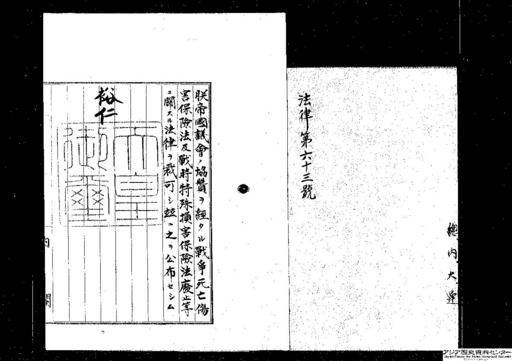 法律第六十三號
朕帝國議會ノ協賛ヲ經タル戰爭死亡傷
害保險法及戰時特殊損害保險法廢止等
ニ關スル法律ヲ裁可シ玆ニ之ヲ公布セシム
裕仁
天皇
御璽
内閣
アジア歴史資料センター